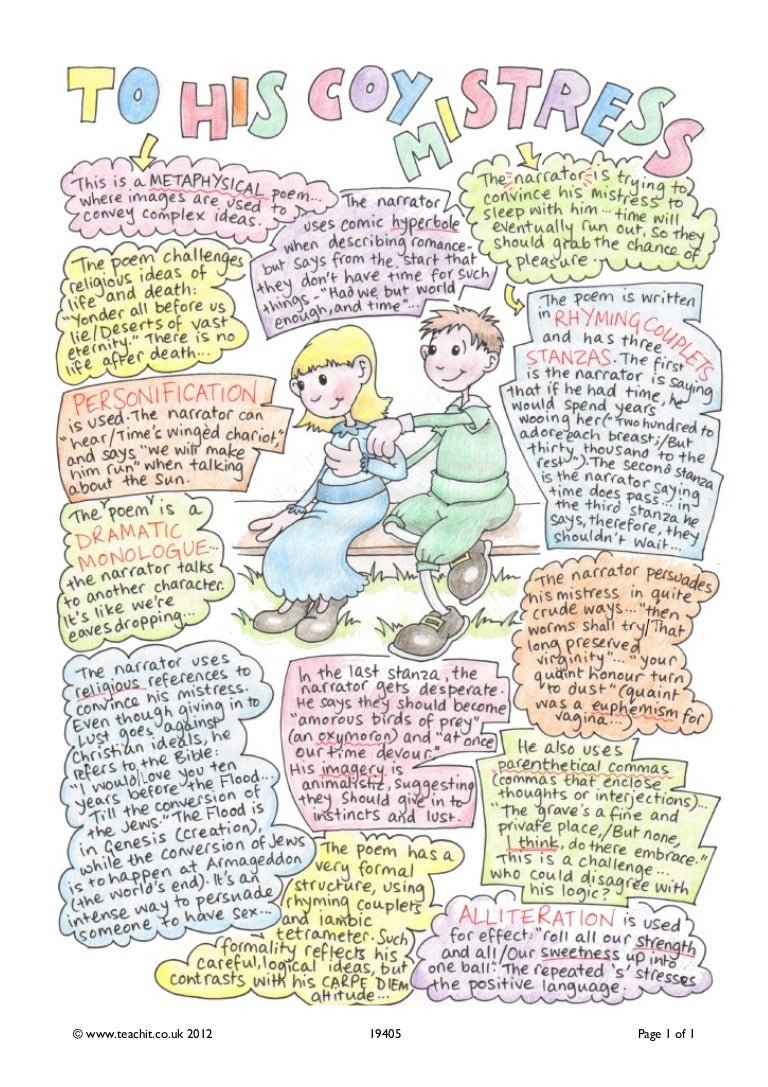 TO HIS COY MISTRESS
This is a METAPHYSICAL poem...
where images are used to
convey complex ideas.
The narrator
uses comic hyperbole
when describing romance-
but says from the start that
they don't have time for such
things - "Had we but world
enough, and time"...
The narrator is trying to
convince his mistress to
sleep with him... time will
eventually run out, so they
should grab the chance of
pleasure.
The poem challenges
religious ideas of
life and death:
"Yonder all before us
lie/Deserts of vast
eternity." There is no
life after death...
The poem is written
in RHYMING COUPLETS
and has three
STANZAS. The first
is the narrator is saying
that if he had time, he
would spend years
wooing her ("Two hundred to
adore each breast;/But
thirty thousand to the
rest"). The second stanza
is the narrator saying
time does pass... in
the third stanza he
says, therefore, they
shouldn't wait...
PERSONIFICATION
is used. The narrator can
"hear/Time's wingèd chariot,"
and says "we will make
him run" when talking
about the Sun.
The poem is a
DRAMATIC
MONOLOGUE...
the narrator talks
to another character.
It's like we're
eavesdropping...
The narrator persuades
his mistress in quite
crude ways... "then
worms shall try/That
long preserved
virginity"... "your
quaint honour turn
to dust" (quaint
was a euphemism for
vagina...)
The narrator uses
religious references to
convince his mistress.
Even though giving in to
lust goes against
Christian ideals, he
refers to the Bible:
"I would/Love you ten
years before the Flood...
Till the conversion of
the Jews." The Flood is
in Genesis (creation),
while the conversion of Jews
is to happen at Armageddon
(the world's end). It's an
intense way to persuade
someone to have sex...
In the last stanza, the
narrator gets desperate.
He says they should become
"amorous birds of prey"
(an oxymoron) and "at once
our time devour."
His imagery is
animalistic, suggesting
they should give in to
instincts and lust.
He also uses
parenthetical commas
(commas that enclose
thoughts or interjections)...
"The grave's a fine and
private place,/But none,
I think, do there embrace."
This is a challenge...
who could disagree with
his logic?
The poem has a
very formal
structure, using
rhyming couplets
and iambic
tetrameter. Such
formality reflects his
careful, logical ideas, but
contrasts with his CARPE DIEM
attitude...
ALLITERATION is used
for effect: "roll all our strength
and all/Our sweetness up into
one ball". The repeated 's' stresses
the positive language.
© www.teachit.co.uk 2012
19405
Page 1 of 1